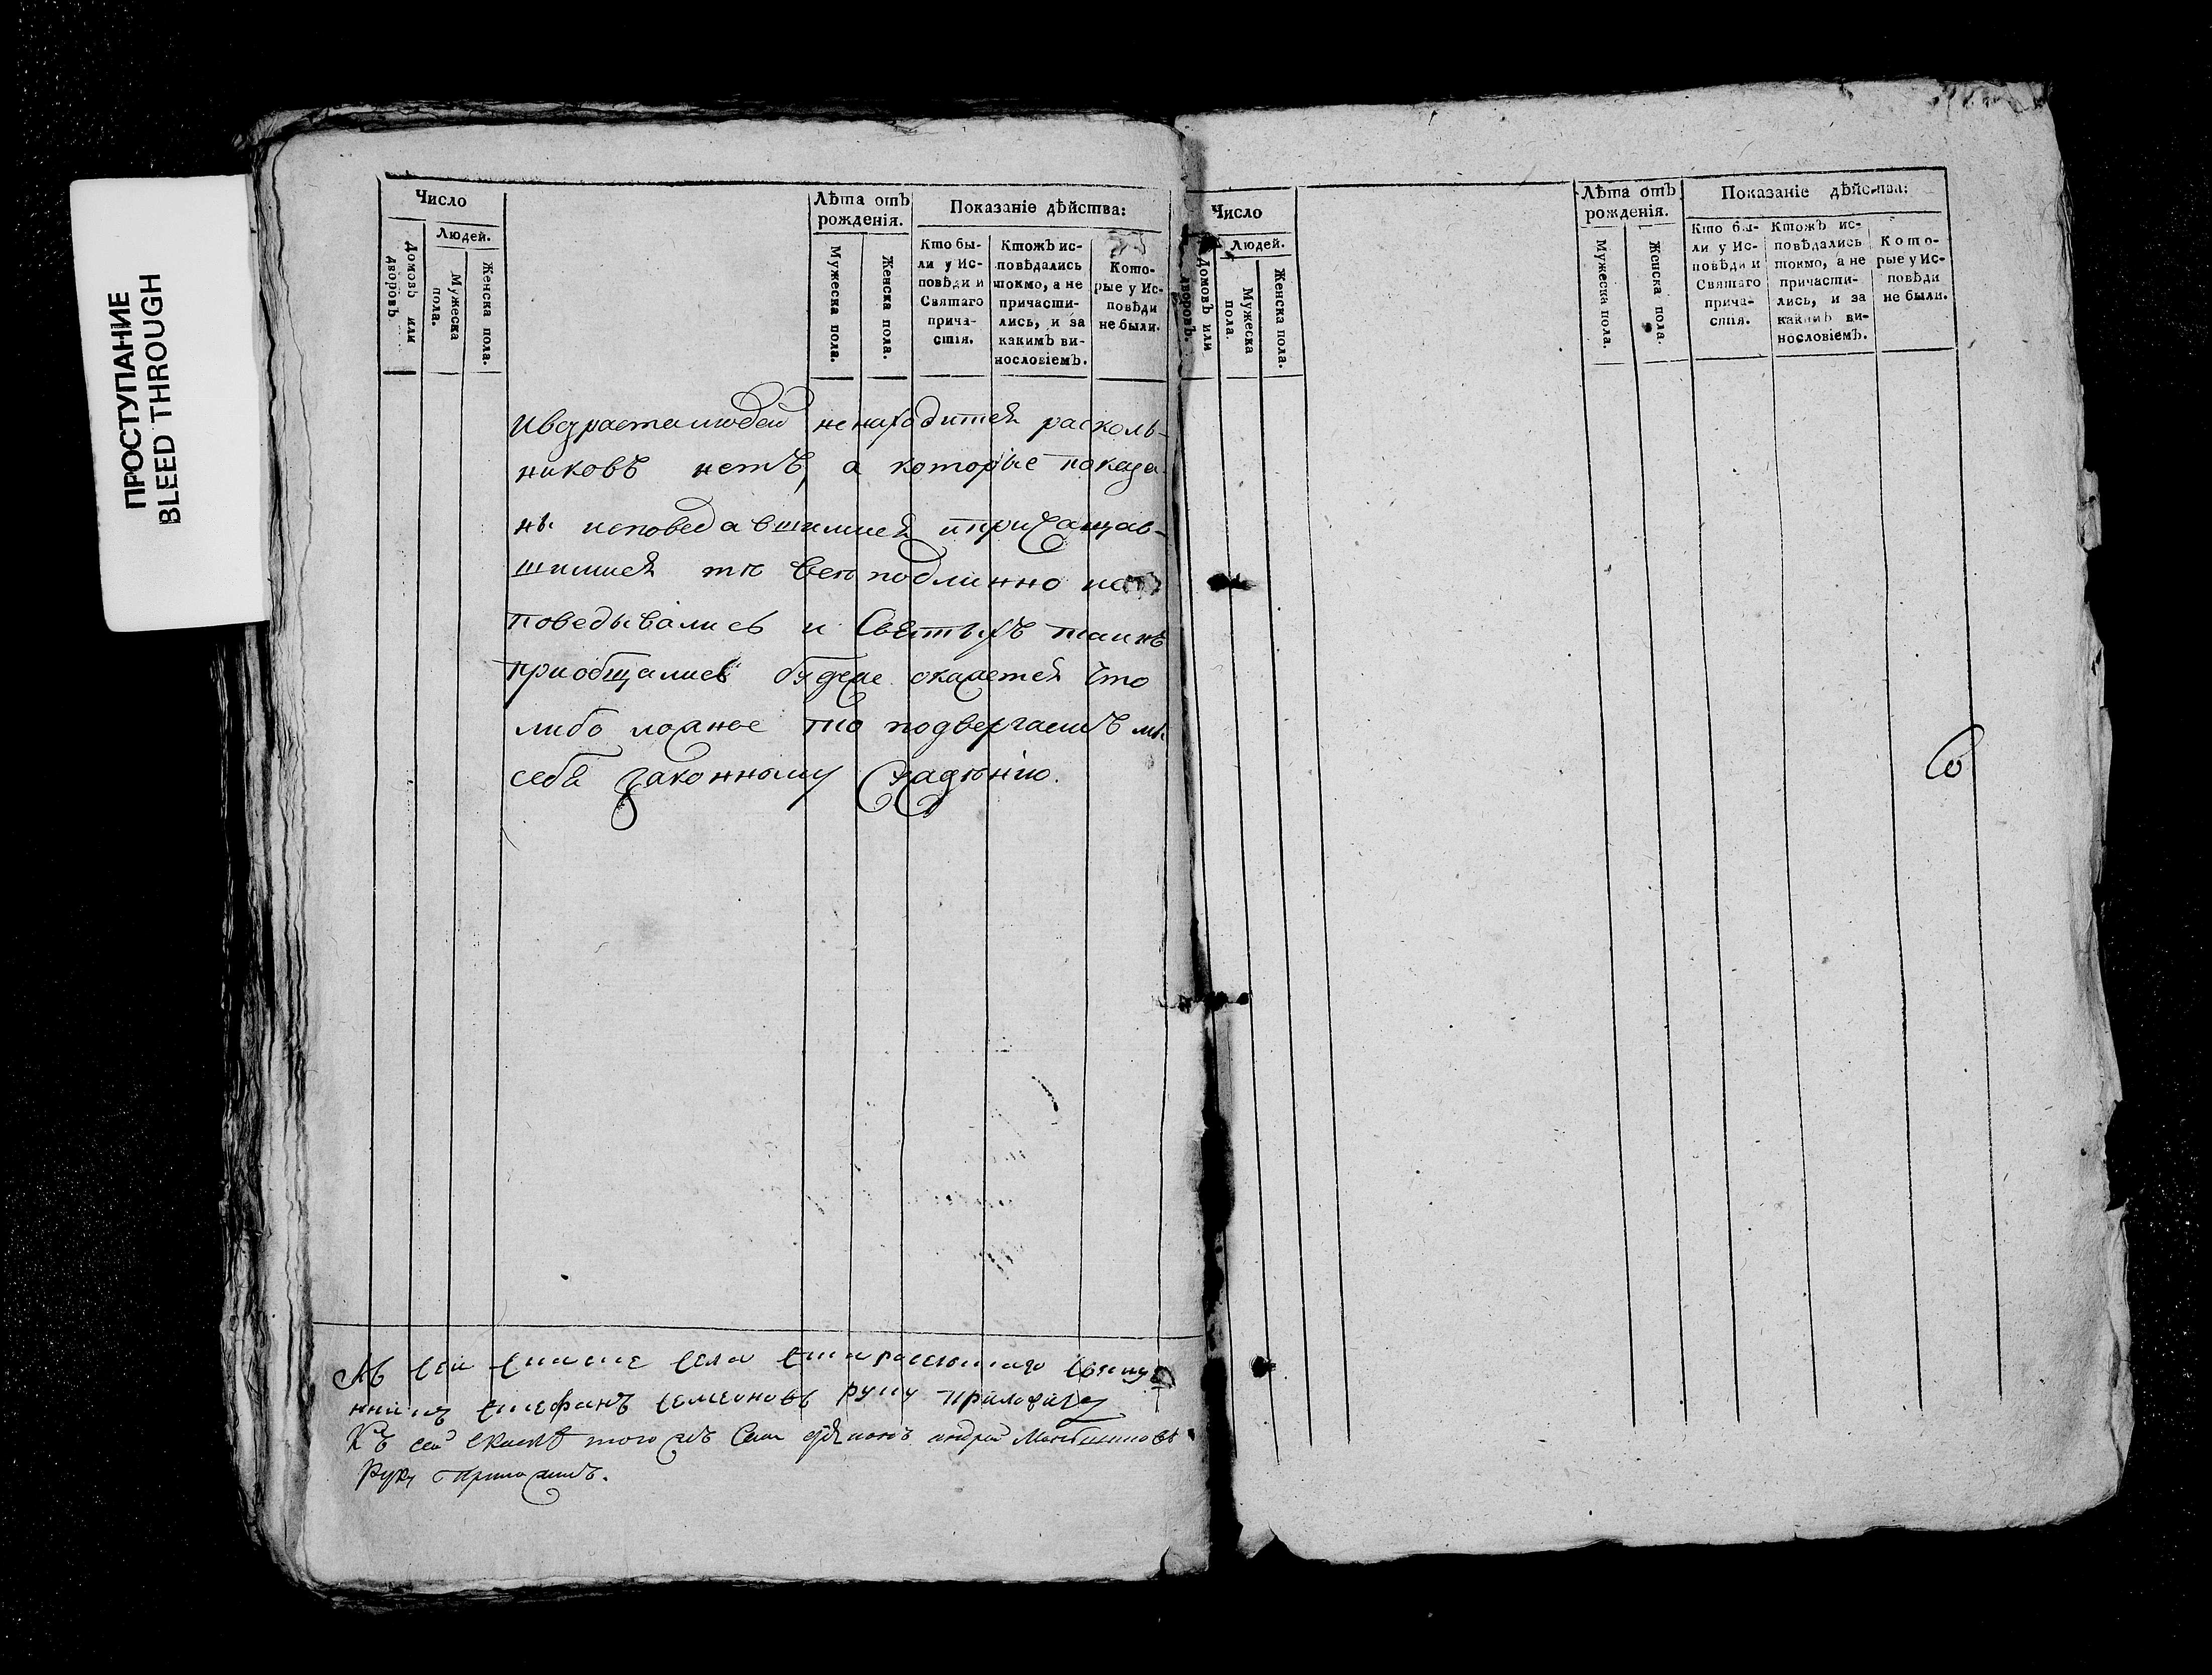 ПРОСТУПАНИЕ
BLEED THROUGH
Число
Людей.
Домовъ или дворовъ.
Мужеска пола.
Женска пола.
Лѣта отъ рожденія.
Мужеска пола.
Женска пола.
Показаніе дѣйства:
Кто бы-
ли у Ис-
повѣди и
Святаго
прича-
стія.
Ктожъ ис-
повѣдались
токмо, а не
причасти-
лись, и за
какимъ ви-
нословіемъ.
Кото-
рые у Ис-
повѣди
не были.
и возраста людей не находится расколь-
никовъ нетъ, а которые показа-
ны исповедавшимися и причащав-
шимися те все подлинно ис
поведывались и Святыхъ таинъ
приобщались будеже окажется что
либо ложное то подвергаемъ мы
себя законному суждению.
Къ сей села
Стефанъ Семеоновъ руку приложилъ
Къ сей того жъ села андрей
Руку приложилъ.
Число
Людей.
Домовъ или дворовъ.
Мужеска пола.
Женска пола.
Лѣта отъ рожденія.
Мужеска пола.
Женска пола.
Показаніе дѣйства:
Кто бы-
ли у Ис-
повѣди и
Святаго
прича-
стія.
Ктожъ ис-
повѣдались
токмо, а не
причасти-
лись, и за
какимъ ви-
нословіемъ.
Кото-
рые у Ис-
повѣди
не были.